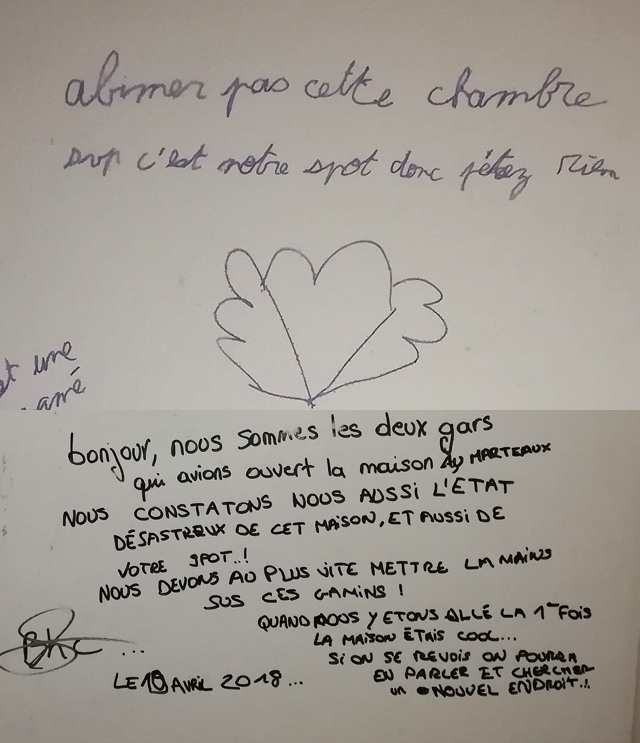 abimer pas cette chambre
svp c'est notre spot donc pétez rien
et une
amé
bonjour, nous sommes les deux gars
qui avions ouvert la maison MARTEAUX
NOUS CONSTATONS NOUS AUSSI L'ETAT
DÉSASTREUX DE CET MAISON, ET AUSSI DE
VOTRE SPOT..!
NOUS DEVONS AU PLUS VITE METTRE LA MAINS
SUS CES GAMINS !
QUAND NOUS Y ETONS ALLÉ LA 1ere FOIS
LA MAISON ÉTAIS COOL...
SI ON SE REVOIS ON POURRA
EN PARLER ET CHERCHER
un NOUVEL ENDROIT..!
BKC ...
LE 10 Avril 2018...